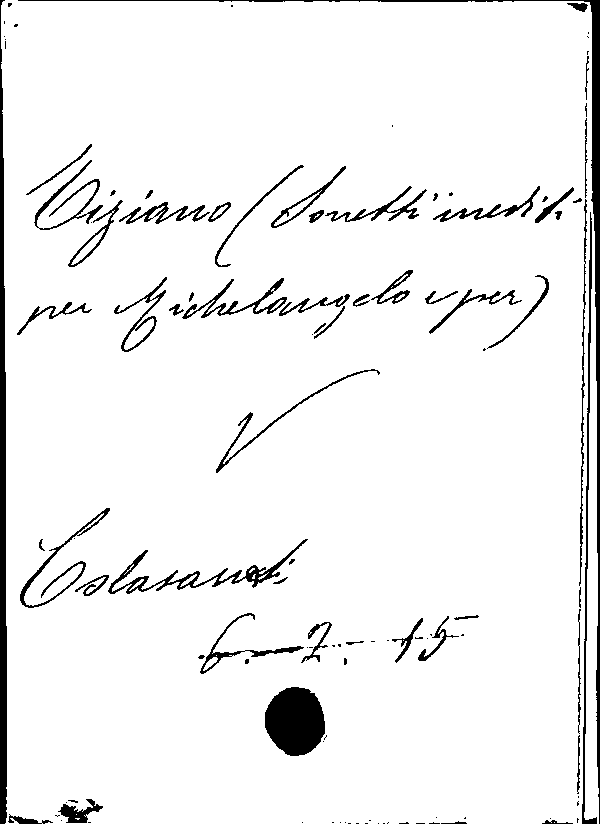 Tiziano (Sonetti inediti
per Michelangelo e per)
V
Colasanti
6. 2. 15